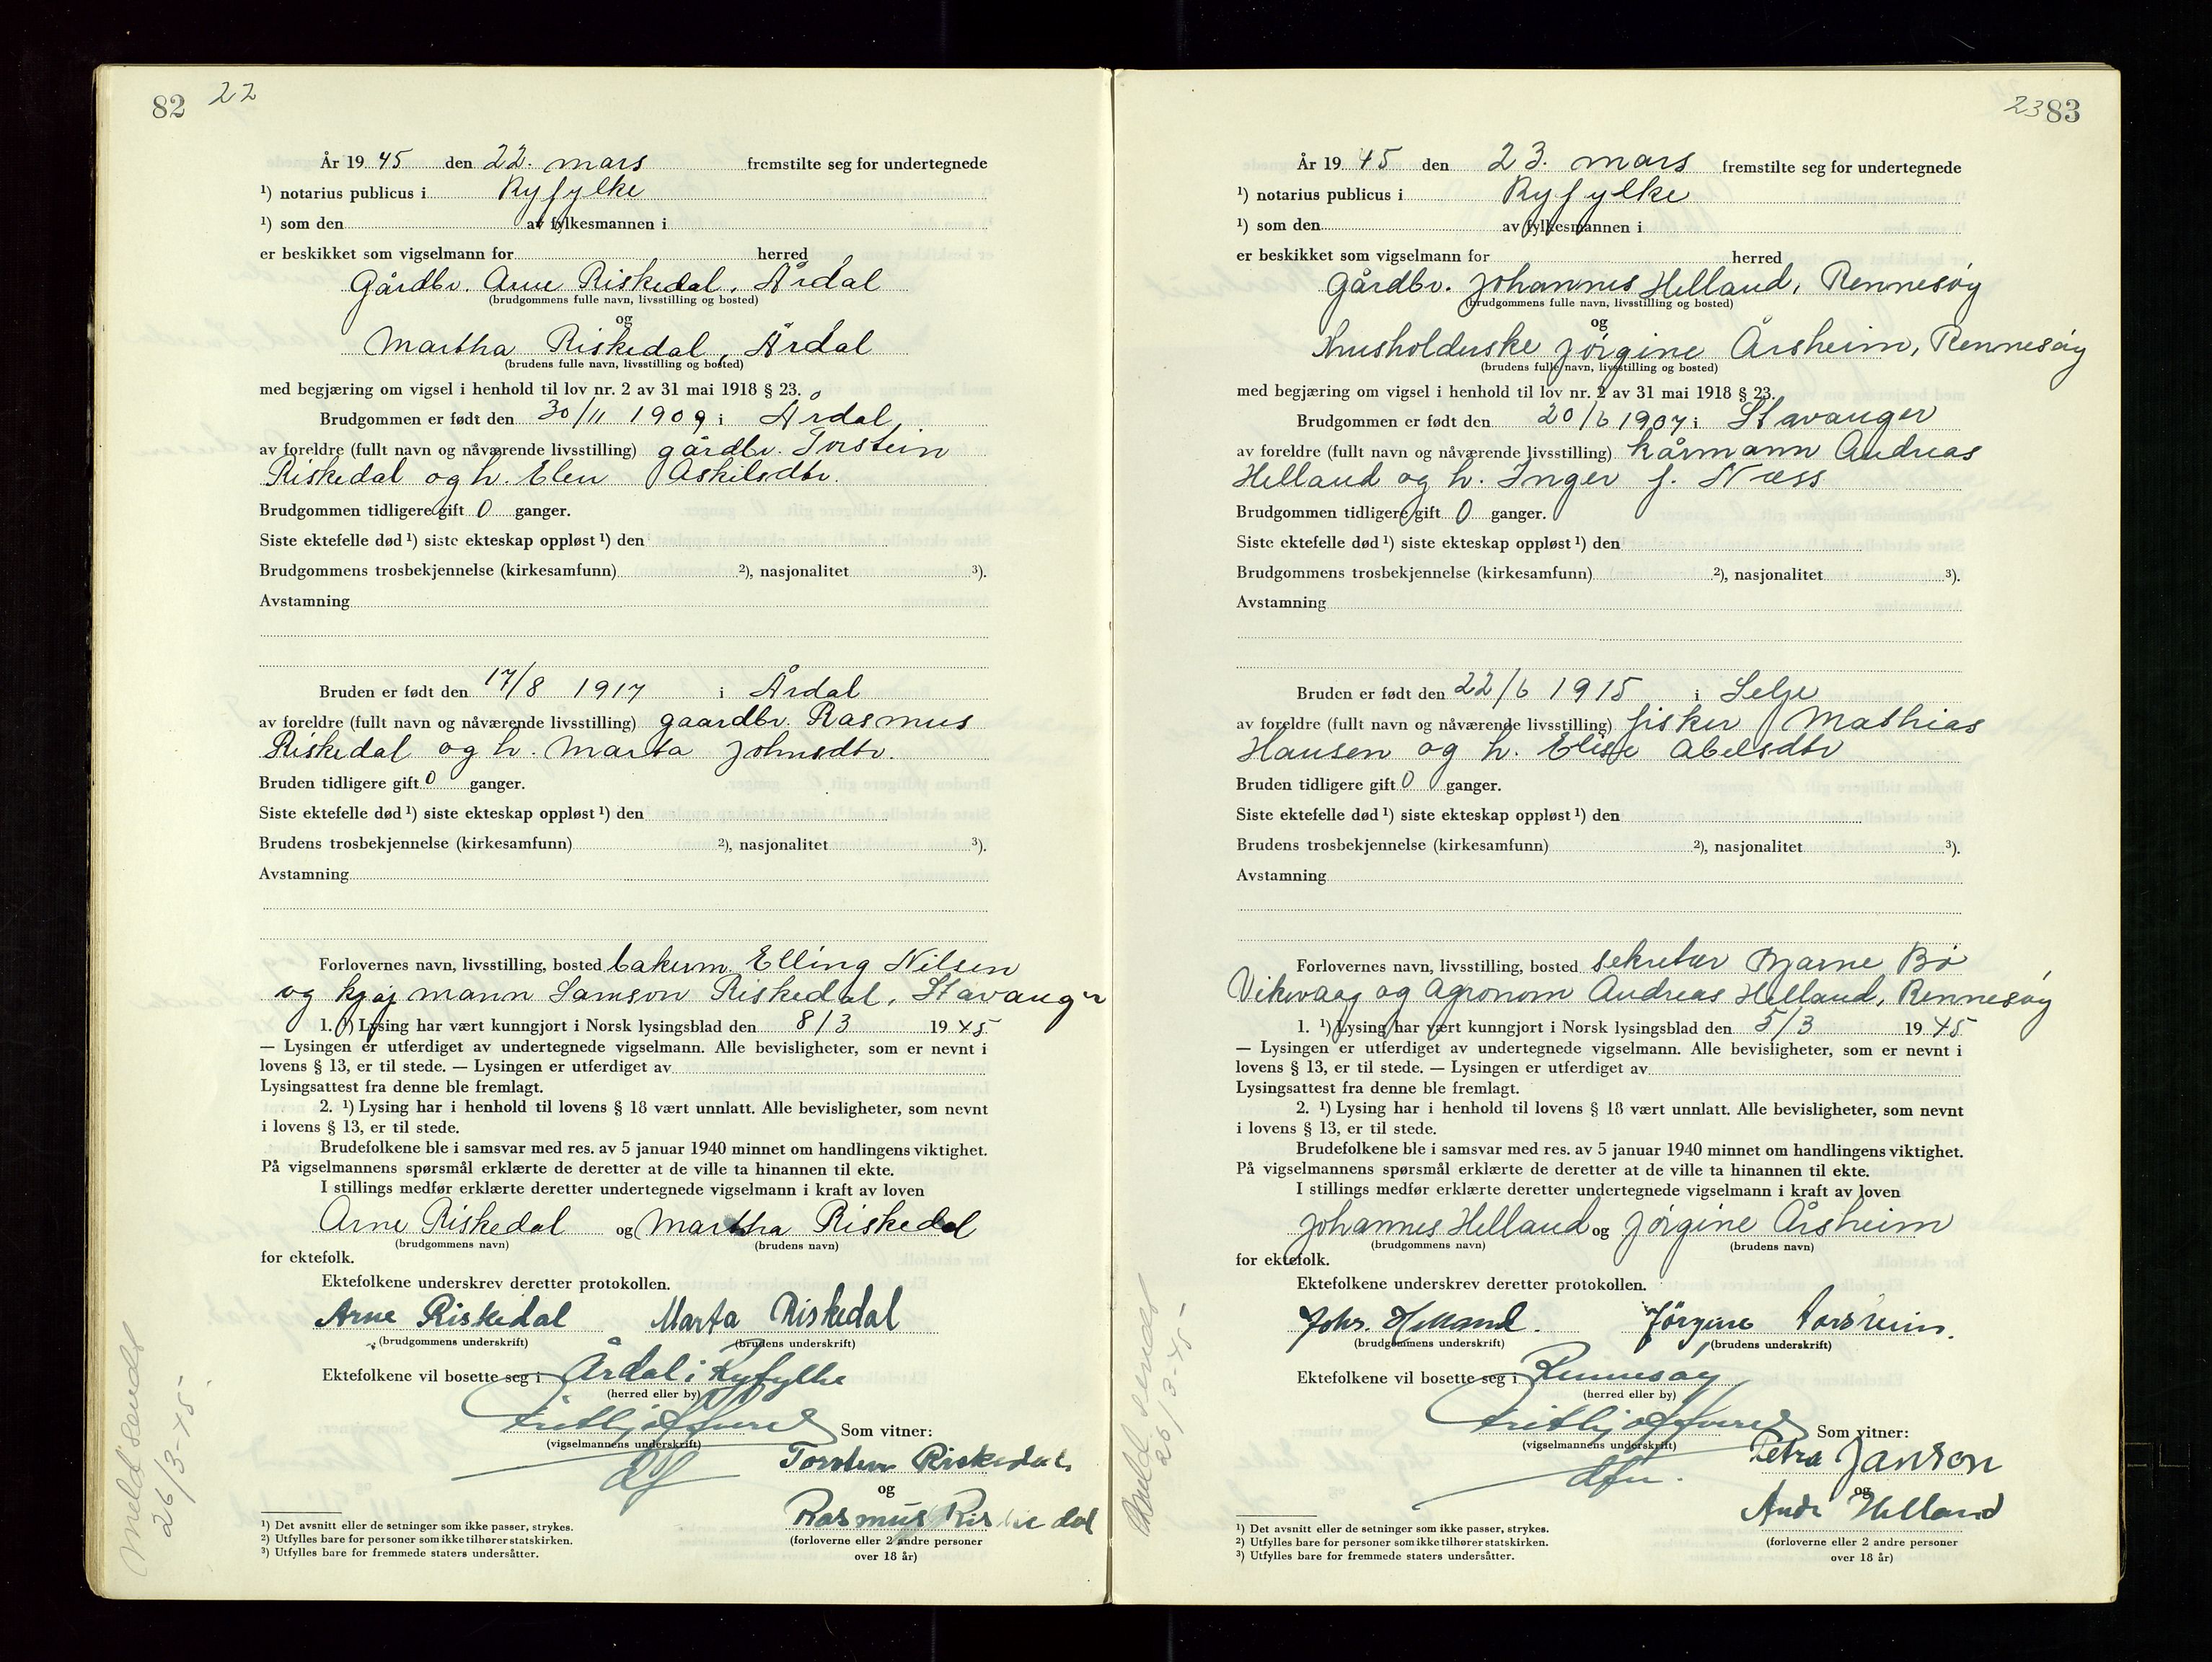 82 22
År 19 45 den 22. mars fremstilte seg for undertegnede
¹) notarius publicus i Ryfylke
¹) som den av fylkesmannen i
er beskikket som vigselmann for herred
Gårdbr. Arne Riskedal, Årdal
(brudgommens fulle navn, livsstilling og bosted)
og
Martha Riskedal, Årdal
(brudens fulle navn, livsstilling og bosted)
med begjæring om vigsel i henhold til lov nr. 2 av 31 mai 1918 § 23.
Brudgommen er født den 30/11 1909 i Årdal
av foreldre (fullt navn og nåværende livsstilling) gårdbr. Torstein
Riskedal og h. Elen Askilsdtr.
Brudgommen tidligere gift 0 ganger.
Siste ektefelle død ¹) siste ekteskap oppløst ¹) den
Brudgommens trosbekjennelse (kirkesamfunn) ²), nasjonalitet ³).
Avstamning
Bruden er født den 17/8 1917 i Årdal
av foreldre (fullt navn og nåværende livsstilling) gaardbr. Rasmus
Riskedal og h. Marta Johnsdtr.
Bruden tidligere gift 0 ganger.
Siste ektefelle død ¹) siste ekteskap oppløst ¹) den
Brudens trosbekjennelse (kirkesamfunn) ²), nasjonalitet ³).
Avstamning
Forlovernes navn, livsstilling, bosted bakerm. Elling Nilsen
og kjøjmann Samson Riskedal, Stavanger
1. ¹) Lysing har vært kunngjort i Norsk lysingsblad den 8/3 19 45
— Lysingen er utferdiget av undertegnede vigselmann. Alle bevisligheter, som er nevnt i
lovens § 13, er til stede. — Lysingen er utferdiget av
Lysingsattest fra denne ble fremlagt.
2. ¹) Lysing har i henhold til lovens § 18 vært unnlatt. Alle bevisligheter, som nevnt
i lovens § 13, er til stede.
Brudefolkene ble i samsvar med res. av 5 januar 1940 minnet om handlingens viktighet.
På vigselmannens spørsmål erklærte de deretter at de ville ta hinannen til ekte.
I stillings medfør erklærte deretter undertegnede vigselmann i kraft av loven
Arne Riskedal og Martha Riskedal
(brudgommens navn) (brudens navn)
for ektefolk.
Ektefolkene underskrev deretter protokollen.
Arne Riskedal Marta Riskedal
(brudgommens underskrift) (brudens underskrift)
Ektefolkene vil bosette seg i Årdal i Ryfylke
(herred eller by)
Som vitner:
(vigselmannens underskrift)
Torstein Riskedal
og
Rasmus Riskedal
(forloverne eller 2 andre personer
over 18 år)
¹) Det avsnitt eller de setninger som ikke passer, strykes.
²) Utfylles bare for personer som ikke tilhører statskirken.
³) Utfylles bare for fremmede staters undersåtter.
Meld. sendt
26/3-45-
23 83
År 19 45 den 23. mars fremstilte seg for undertegnede
¹) notarius publicus i Ryfylke
¹) som den av fylkesmannen i
er beskikket som vigselmann for herred
Gårdbr. Johannes Helland, Rennesøy
(brudgommens fulle navn, livsstilling og bosted)
og
Husholderske Jørgine Årsheim, Rennesøy
(brudens fulle navn, livsstilling og bosted)
med begjæring om vigsel i henhold til lov nr. 2 av 31 mai 1918 § 23.
Brudgommen er født den 20/6 1907 i Stavanger
av foreldre (fullt navn og nåværende livsstilling) kårmann Andreas
Helland og h. Inger f. Næss
Brudgommen tidligere gift 0 ganger.
Siste ektefelle død ¹) siste ekteskap oppløst ¹) den
Brudgommens trosbekjennelse (kirkesamfunn) ²), nasjonalitet ³).
Avstamning
Bruden er født den 22/6 1915 i Selje
av foreldre (fullt navn og nåværende livsstilling) fisker Mathias
Hansen og h. Elise Abelsdtr
Bruden tidligere gift 0 ganger.
Siste ektefelle død ¹) siste ekteskap oppløst ¹) den
Brudens trosbekjennelse (kirkesamfunn) ²), nasjonalitet ³).
Avstamning
Forlovernes navn, livsstilling, bosted sekretær Bjarne Bø
Vikevaag og Agronom Andreas Helland, Rennesøy
1. ¹) Lysing har vært kunngjort i Norsk lysingsblad den 5/3 19 45
— Lysingen er utferdiget av undertegnede vigselmann. Alle bevisligheter, som er nevnt i
lovens § 13, er til stede. — Lysingen er utferdiget av
Lysingsattest fra denne ble fremlagt.
2. ¹) Lysing har i henhold til lovens § 18 vært unnlatt. Alle bevisligheter, som nevnt
i lovens § 13, er til stede.
Brudefolkene ble i samsvar med res. av 5 januar 1940 minnet om handlingens viktighet.
På vigselmannens spørsmål erklærte de deretter at de ville ta hinannen til ekte.
I stillings medfør erklærte deretter undertegnede vigselmann i kraft av loven
Johannes Helland og Jørgine Årsheim
(brudgommens navn) (brudens navn)
for ektefolk.
Ektefolkene underskrev deretter protokollen.
Johs. Helland. Jörgine Aarsheim.
(brudgommens underskrift) (brudens underskrift)
Ektefolkene vil bosette seg i Rennesøy
(herred eller by)
Som vitner:
(vigselmannens underskrift)
Petra Janson
og
Andr Helland
(forloverne eller 2 andre personer
over 18 år)
¹) Det avsnitt eller de setninger som ikke passer, strykes.
²) Utfylles bare for personer som ikke tilhører statskirken.
³) Utfylles bare for fremmede staters undersåtter.
Meld. sendt
26/3-45-